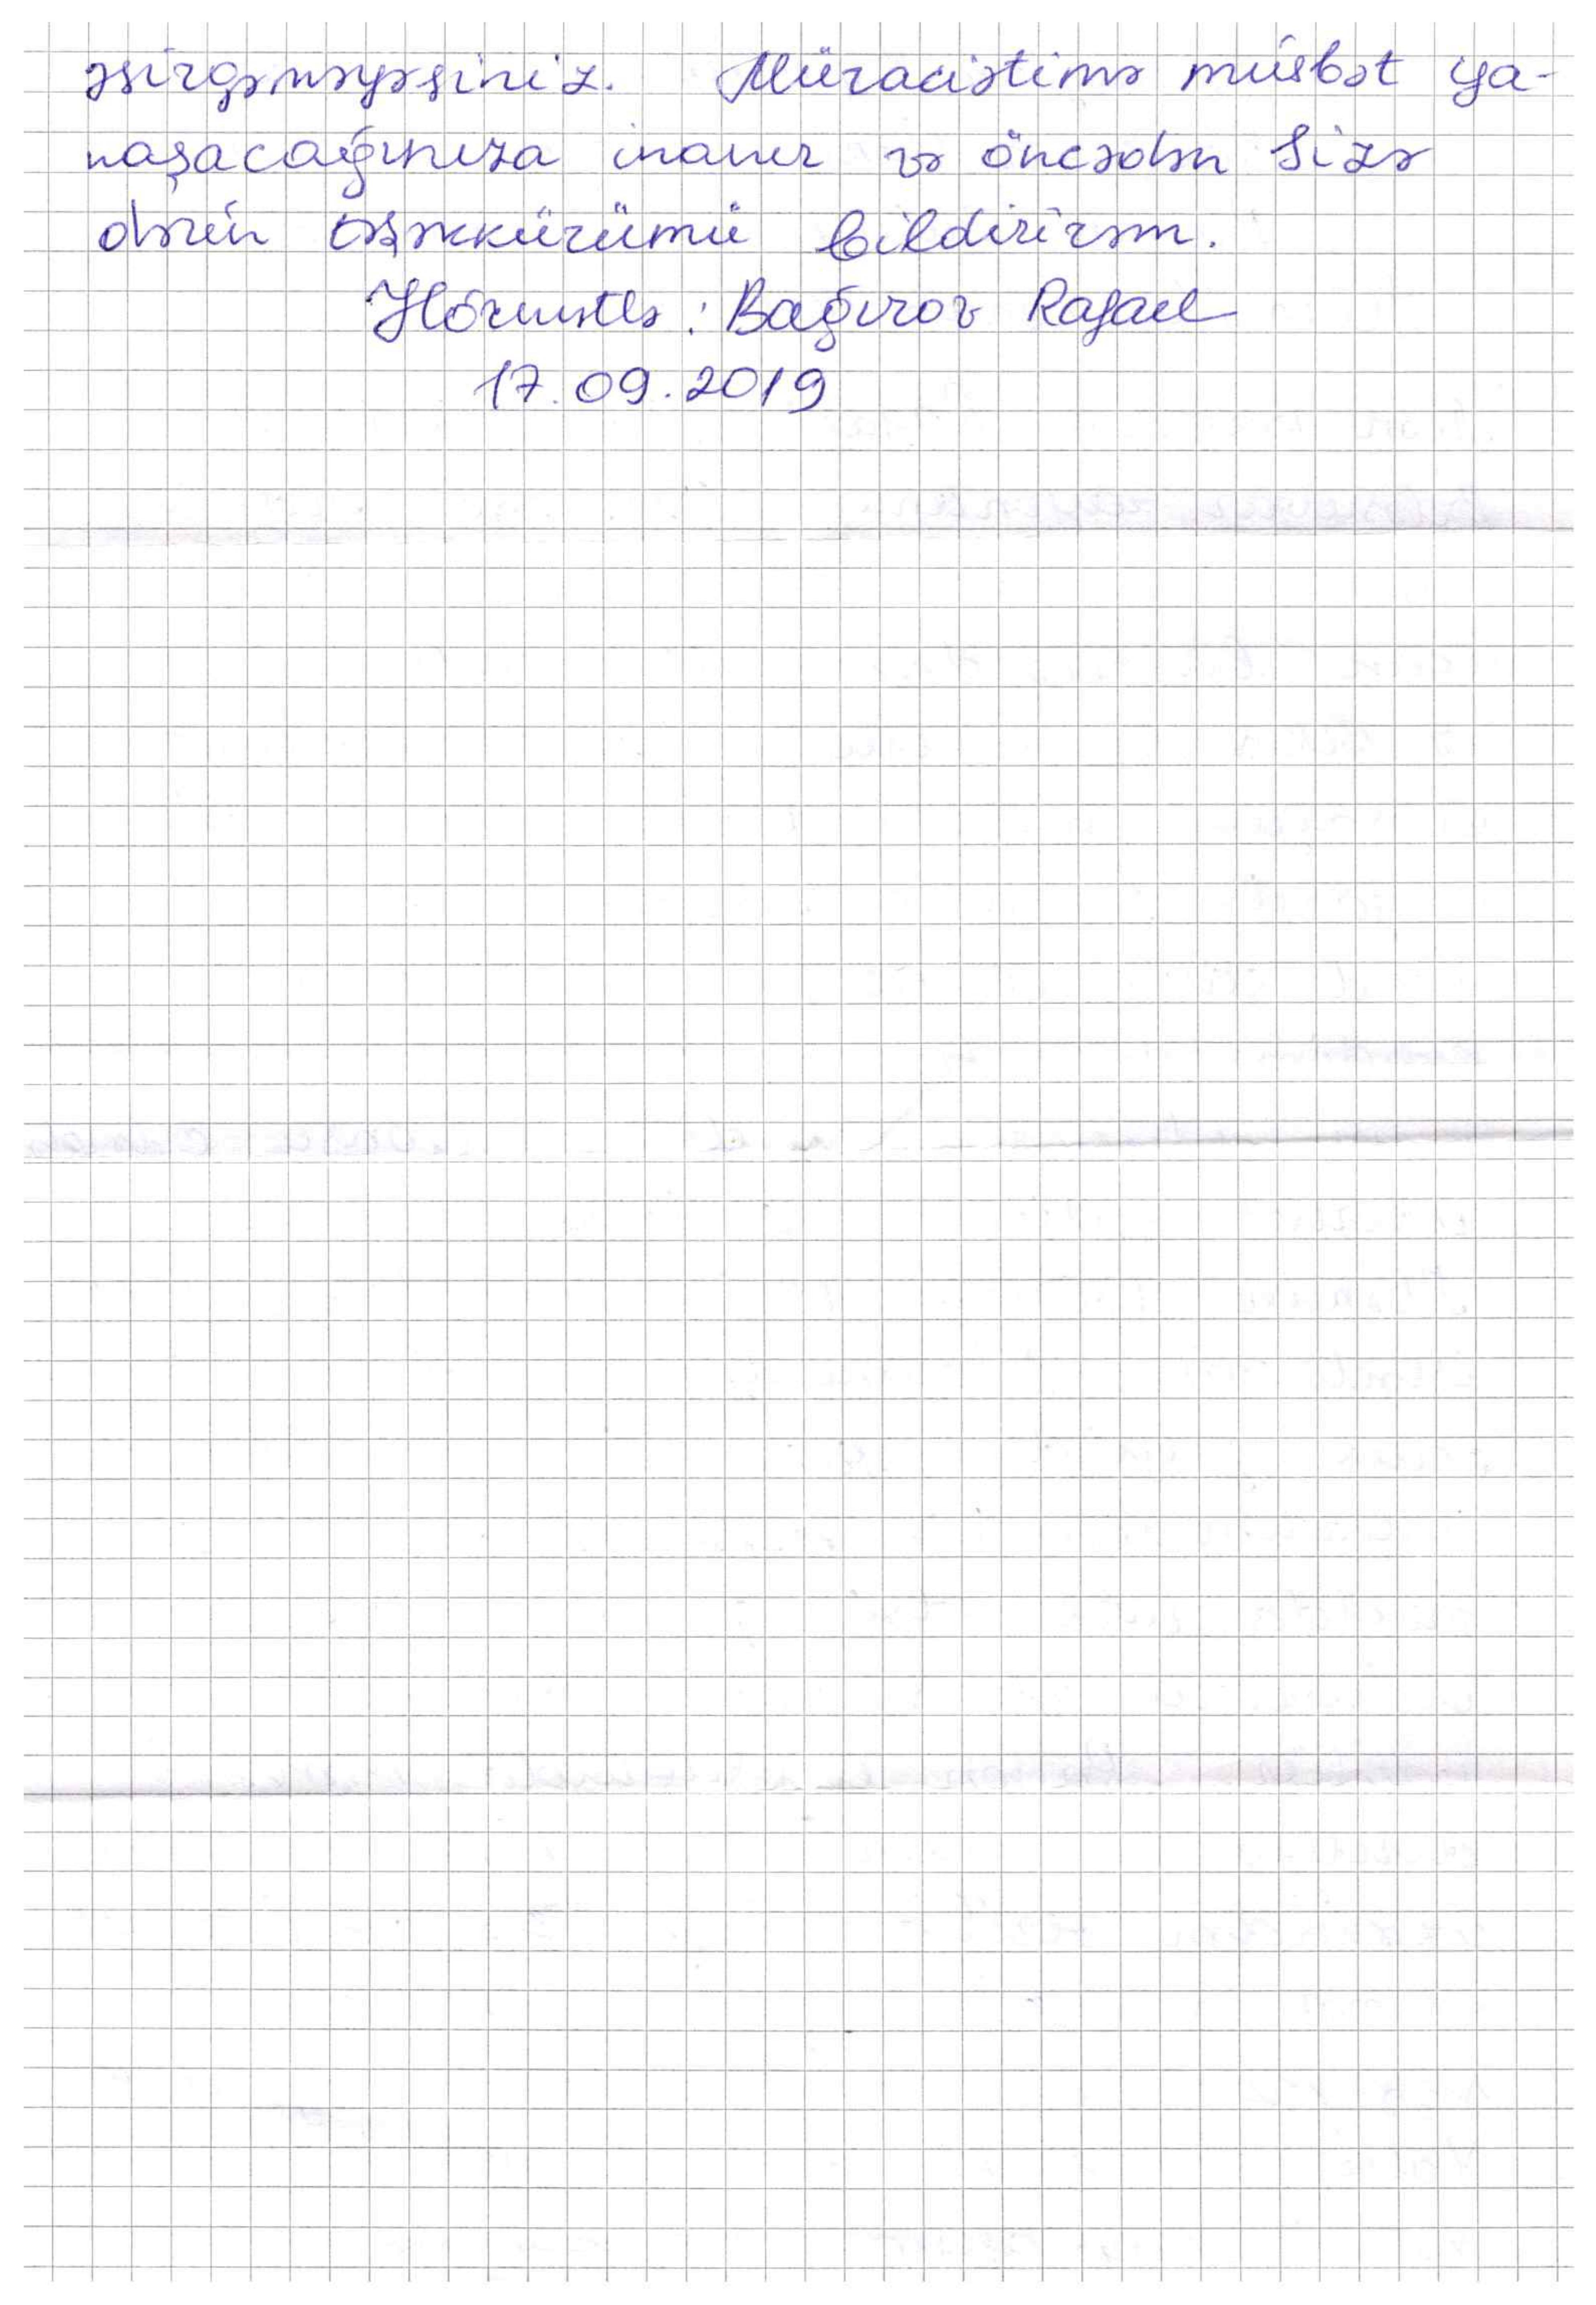 əsirgəməyəsiniz. Müraciətimə müsbət ya-
naşacağınıza inanır və öncədən Sizə
dərin təşəkkürümü bildirirəm.
Hörmətlə: Bağırov Rafael
17.09.2019